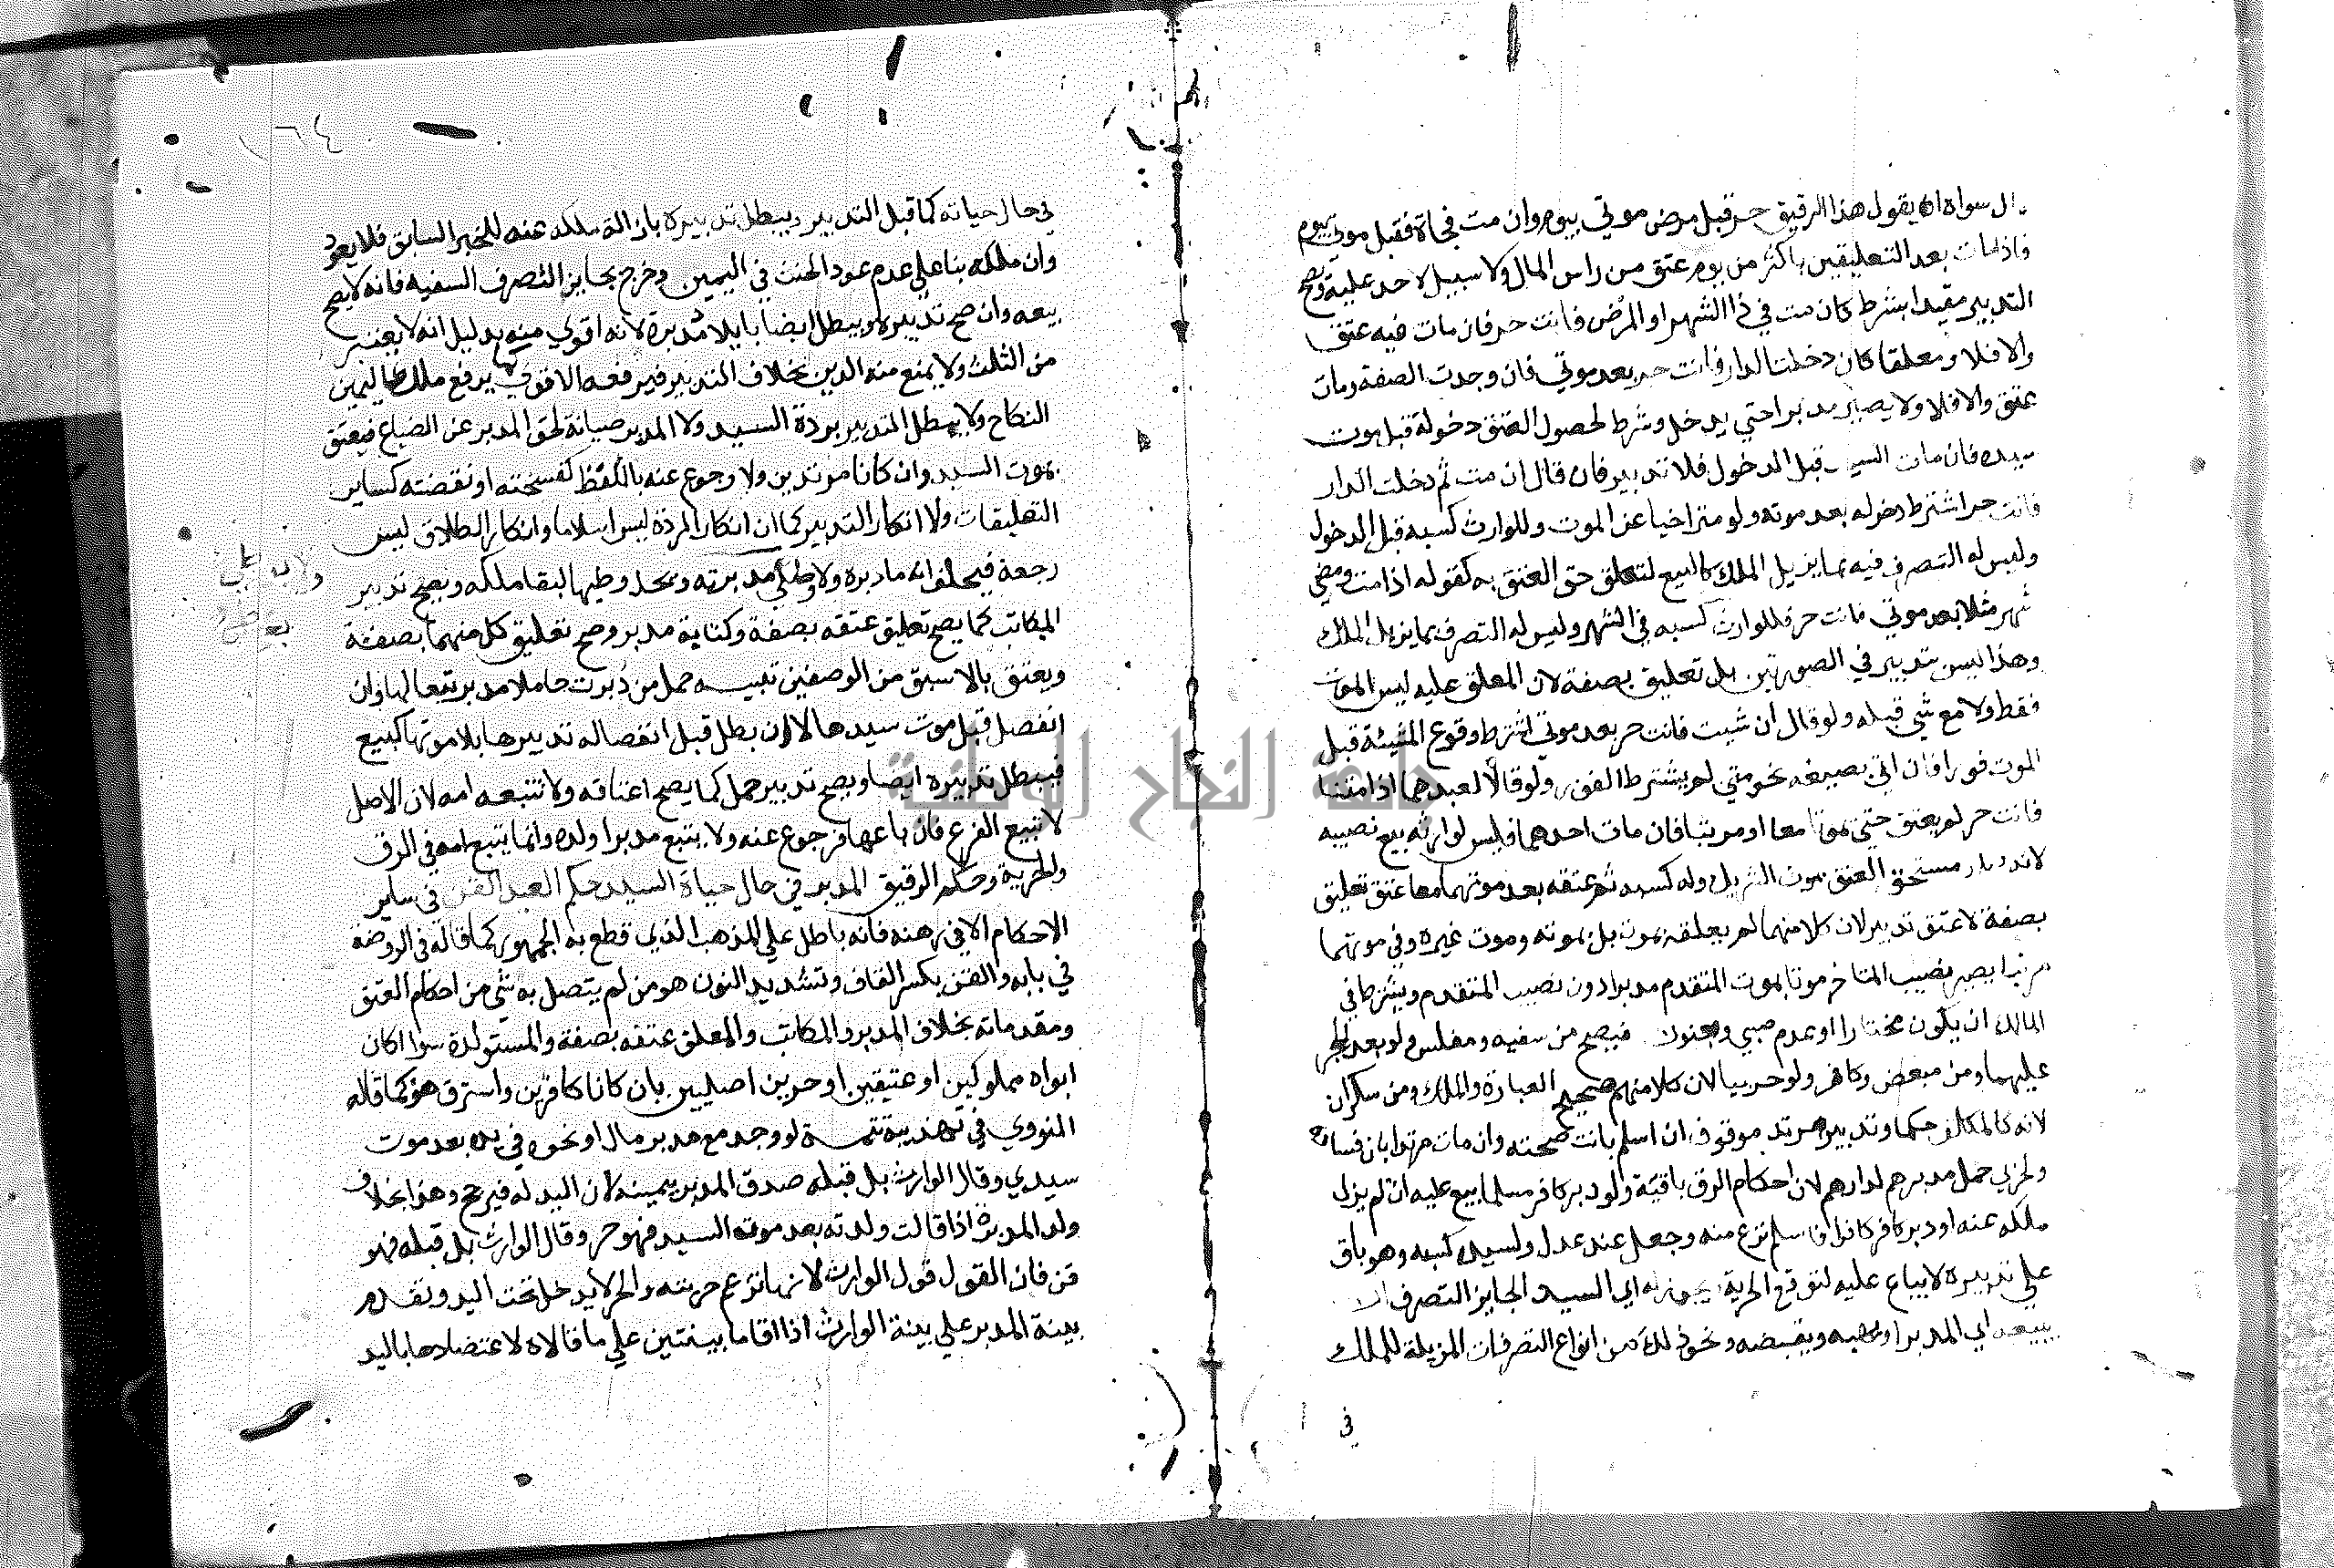 ال سواه ان يقول هذا الرقيق حر قبل مرض موتي بيوم وان مت فجاة فقبل موتي بيوم
فاذا مات بعد التعليقين باكثر من يوم عتق من راس المال ولا سبيل لاحد عليه ويصح
التدبير مقيدا بشرط كان مت في ذا الشهر او المرض فانت حر فان مات فيه عتق
والا فلا ومعلقا كان دخلت الدار فانت حر بعد موتي فان وجدت الصفة ومات
عتق والا فلا ولا يصير مدبرا حتي يدخل وشرط لحصول العتق دخوله قبل موت
سيده فان مات السيد قبل الدخول فلا تدبير فان قال ان مت ثم دخلت الدار
فانت حر اشترط دخوله بعد موته ولو متراخيا عن الموت وللوارث كسبه قبل الدخول
وليس له التصرف فيه بما يزيل الملك كالبيع لتعلق حق العتق به كقوله اذا مت ومضي
شهر مثلا بعد موتي فانت حر فللوارث كسبه في الشهر وليس له التصرف بما يزيل الملك
وهذا ليس بتدبير في الصورتين بل تعليق بصفة لان المعلق عليه ليس الموت
فقط ولا مع شي قبله ولو قال ان شيت فانت حر بعد موتي اشترط وقوع المشيئة قبل
الموت فورا فان اتي بصيغه نحو متي لم يشترط الفور ولو قالا لعبدهما اذا متنا
فانت حر لم يعتق حتي يموتا معا او مرتبا فان مات احدهما فليس لوارثه بيع نصيبه
لانه صار مستحق العتق بموت الشريك وله كسبه ثم عتقه بعد موتهما معا عتق تعليق
بصفة لا عتق تدبير لان كلا منهما لم يعلقه بموت بل بموته وموت غيره وفي موتهما
مرتبا يصير نصيب المتاخر موتا بموت المتقدم مدبرا دون نصيب المتقدم ويشترط في
المالك ان يكون مختارا او عدم صبي وجنون فيصح من سفيه ومفلس ولو بعد الحجر
عليهما ومن مبعض وكافر ولو حربيا لان كلا منهم صحيح العبارة والملك ومن سكران
لانه كالمكلف حكما وتدبير مرتد موقوف ان اسلم بانت صحته وان مات مرتدا بان فساده
ولحربي حمل مدبرهم لدارهم لان احكام الرق باقية ولو دبر كافر مسلما بيع عليه ان لم يزل
ملكه عنه او دبر كافر كافرا فاسلم نزع منه وجعل عند عدل ولسيده كسبه وهو باق
علي تدبيره لا يباع عليه لتوقع الحرية يجوز له اي السيد الجايز التصرف ان
يبيعه اي المدبر او يهبه ويقبضه ونحو ذلك من انواع التصرفات المزيلة للملك
في
١٦٤
في حال حياته كما قبل التدبير ويبطل تدبيره بازالة ملكه عنه للخبر السابق فلا يعود
وان ملكه بنا علي عدم عود الحنث في اليمين وخرج بجايز التصرف السفيه فانه لا يصح
بيعه وان صح تدبيره ويبطل ايضا بايلاد مدبرة لانه اقوي منه بدليل انه لا يعتبر
من الثلث ولا يمنع منه الدين بخلاف التدبير فيرفعه الاقوي كما يرفع ملك اليمين
النكاح ولا يبطل التدبير بردة السيد ولا المدبر صيانة لحق المدبر عن الضياع فيعتق
بموت السيد وان كانا مرتدين ولا رجوع عنه باللفظ كفسخته او نقضته كساير
التعليقات ولا انكار التدبير كما ان انكار الردة ليس اسلاما وانكار الطلاق ليس
رجعة فيحلف انه ما دبره ولا وطئ مدبرته ويحل وطيها لبقا ملكه ويصح تدبير
المكاتب كما يصح تعليق عتقه بصفة وكتابة مدبر وصح تعليق كل منهما بصفة
ويعتق بالاسبق من الوصفين تنبيه حمل من دبرت حاملا مدبر تبعا لها وان
انفصل قبل موت سيدها الا ان بطل قبل انفصاله تدبيرها بلا موتها كبيع
فيبطل تدبيره ايضا ويصح تدبير حمل كما يصح اعتاقه ولا تتبعه امه لان الاصل
لا يتبع الفرع فان باعها فرجوع عنه ولا يتبع مدبرا ولده وانما يتبع امه في الرق
والحرية وحكم الرقيق المدبر في حال حياة السيد حكم العبد القن في ساير
الاحكام الا في رهنه فانه باطل علي المذهب الذي قطع به الجمهور كما قاله في الروضة
في بابه والقن بكسر القاف وتشديد النون هو من لم يتصل به شي من احكام العتق
ومقدماته بخلاف المدبر والمكاتب والمعلق عتقه بصفة والمستولدة سوا اكان
ابواه مملوكين او عتيقين او حرين اصليين بان كانا كافرين واسترق هو كما قاله
النووي في تهذيبه تتمة لو وجد مع مدبر مال او نحوه في يده بعد موت
سيدي وقال الوارث بل قبله صدق المدبر بيمينه لان اليد له فيرجح وهذا بخلاف
ولد المدبرة اذا قالت ولدته بعد موت السيد فهو حر وقال الوارث بل قبله فهو
قن فان القول قول الوارث لانها تزعم حريته والحر لا يدخل تحت اليد وتقدم
بينة المدبر علي بينة الوارث اذا اقاما بينتين علي ما قالاه لاعتضادها باليد
جامعة النجاح الوطنية